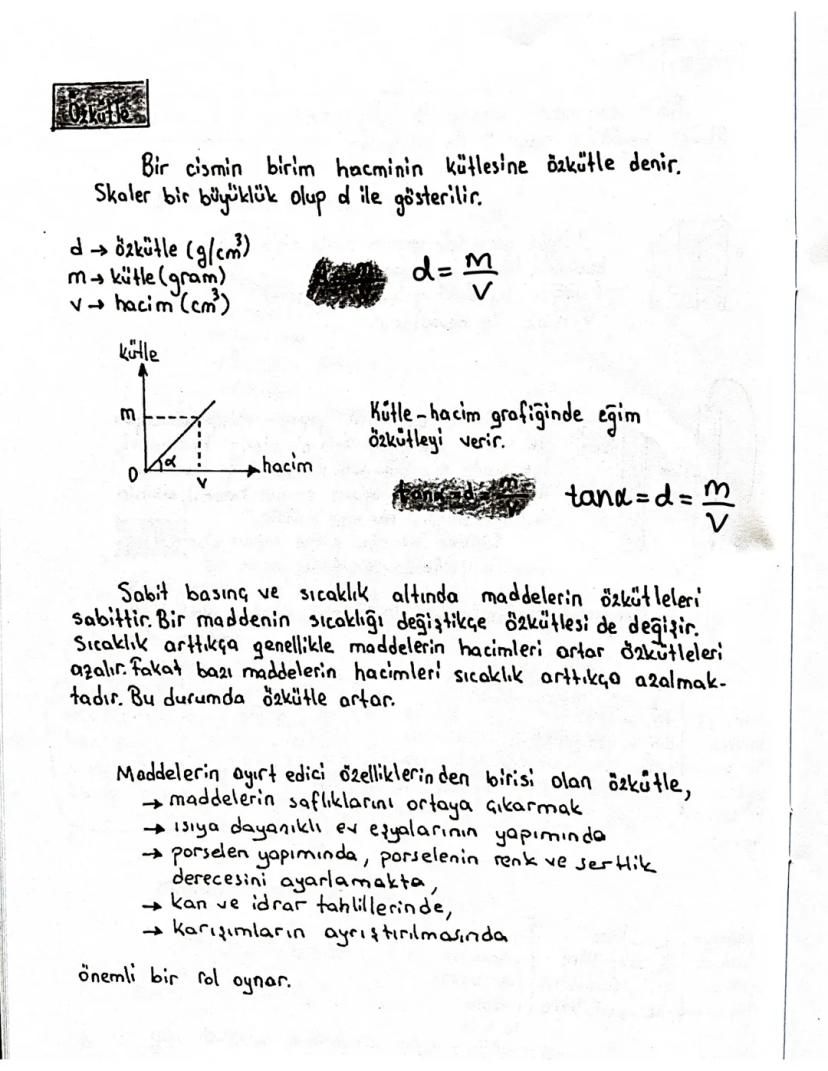 Özkütle
Bir cismin birim hacminin kütlesine özkütle denir.
Skaler bir büyüklük olup d ile gösterilir.
d → özkütle (g/cm³)
m → kütle (gram)
v → hacim (cm³)
d = m/V
kütle
m
0
α
v
hacim
Kütle-hacim grafiğinde eğim
özkütleyi verir.
tanα = d = m/V
tanα = d = m/V
Sabit basınç ve sıcaklık altında maddelerin özkütleleri
sabittir. Bir maddenin sıcaklığı değiştikçe özkütlesi de değişir.
Sıcaklık arttıkça genellikle maddelerin hacimleri artar özkütleleri
azalır. Fakat bazı maddelerin hacimleri sıcaklık arttıkça azalmak-
tadır. Bu durumda özkütle artar.
Maddelerin ayırt edici özelliklerinden birisi olan özkütle,
→ maddelerin saflıklarını ortaya çıkarmak
→ ısıya dayanıklı ev eşyalarının yapımında
→ porselen yapımında, porselenin renk ve sertlik
derecesini ayarlamakta,
→ kan ve idrar tahlillerinde,
→ karışımların ayrıştırılmasında
önemli bir rol oynar.